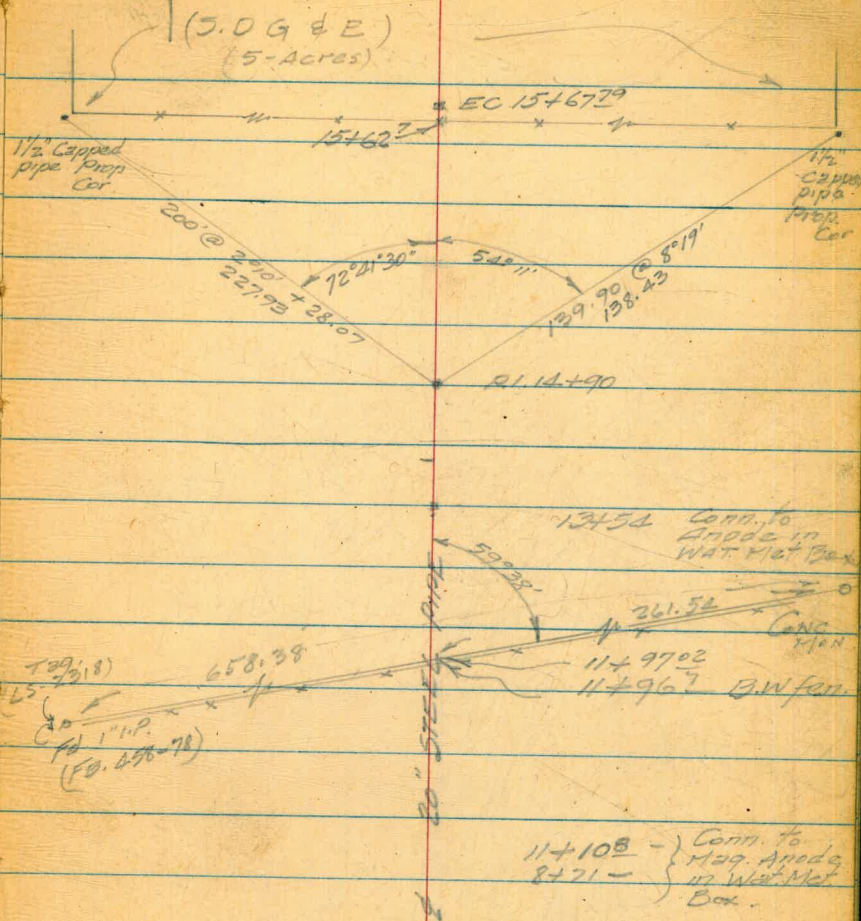 (S.D G & E)
(5-Acres)
EC 15+67.79
15+62.7
1½" Capped
pipe Prop
Cor.
1½"
Capped
pipe
Prop.
Cor
200' @ 2°10' + 28.07
227.93
72°41'30"
54°11'
139.90 @ 8°19'
138.43
P.I. 14+90
13+54 Conn. to
Anode in
WAT. Met Box
59°38'
261.54
Conc
Mon
658.38
11+97.02
11+96.7 B.W fen.
Fd 1" I.P.
(FB. 458-78)
20" STEEL PIPE
11+10.8 - Conn. to
8+71 - Mag. Anode
in Wat. Met.
Box.